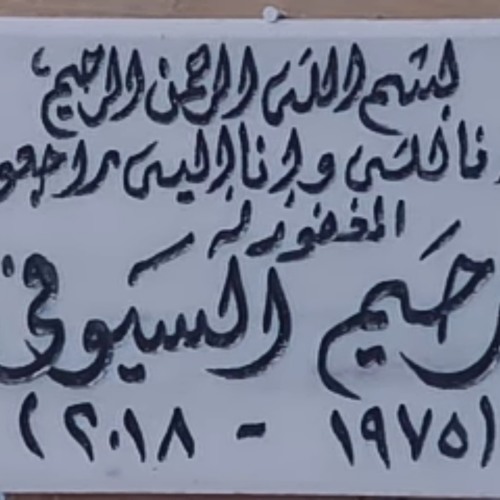 بسم الله الرحمن الرحيم
نا لله وانا اليه راجعو
المغفور له
رحيم السيوفي
(١٩٧٥ - ٢٠١٨)